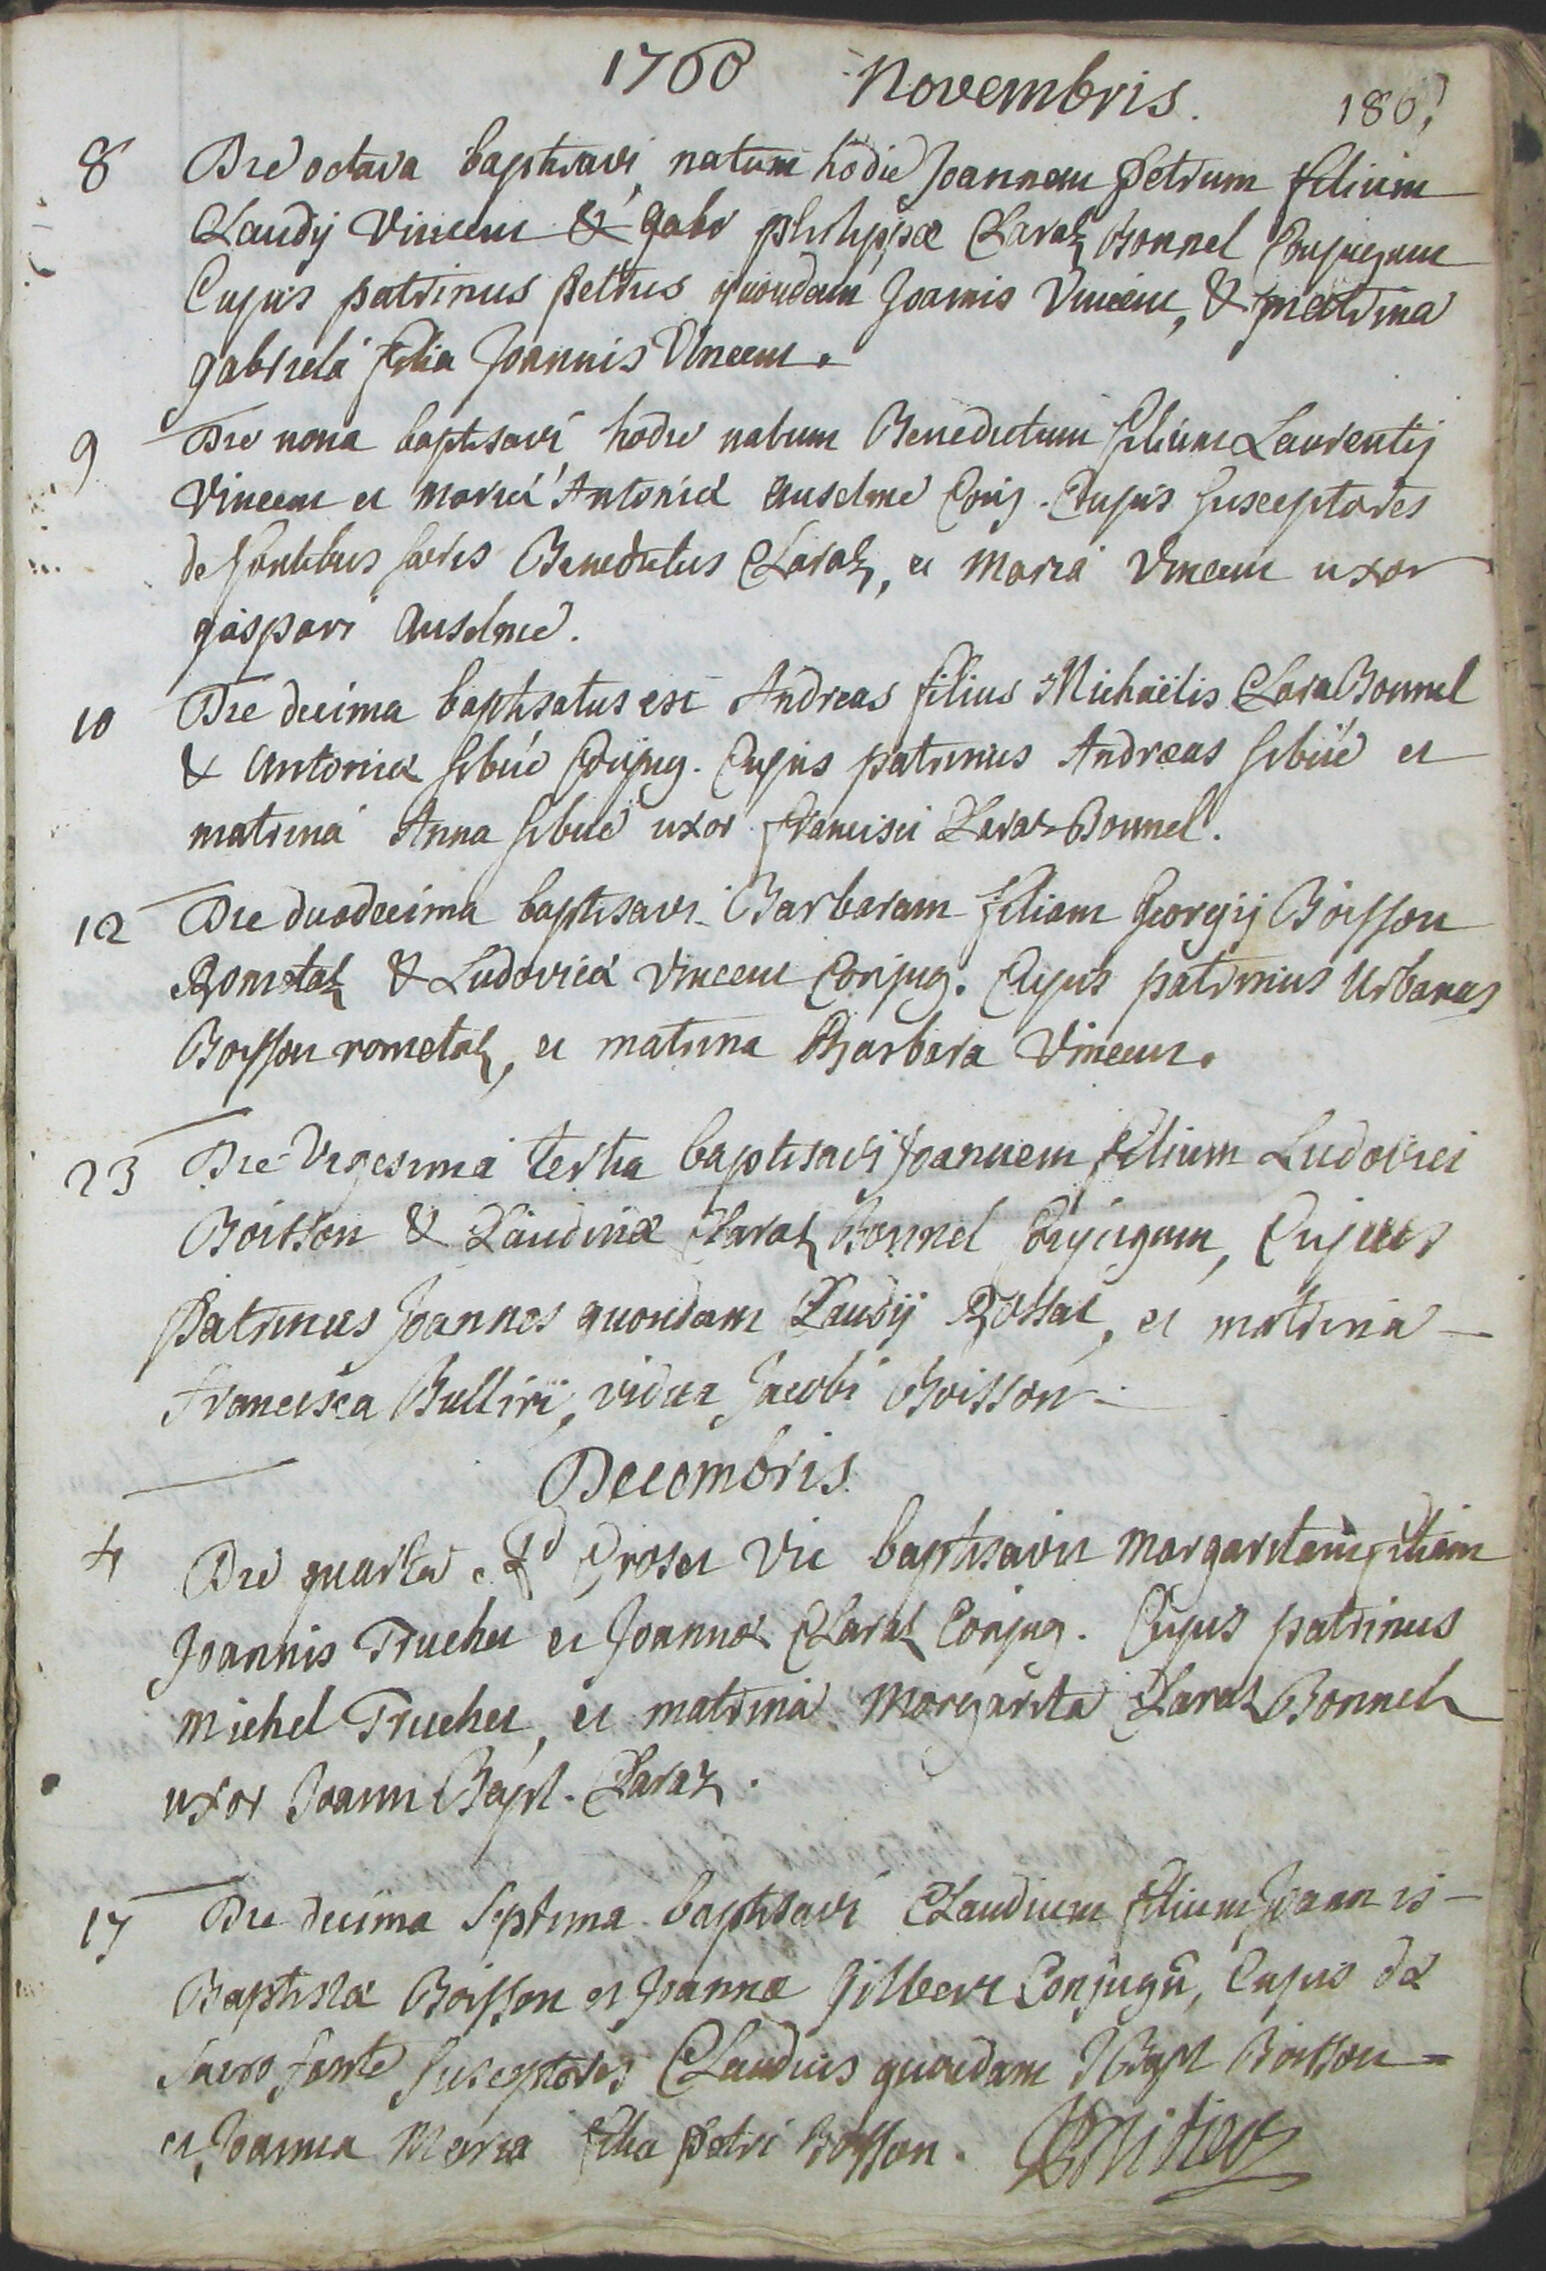 1760 Novembris. 180
8 Die octava baptisavi natum hodie Joannem petrum filium
Claudij Vincent & gabr philippæ Claraz Bonnel Conjugum
Cujus patrinus petrus quondam Joannis Vincent, & matrina
gabriela filia Joannis Vincent.
9 Die nona baptisavi hodie natum Benedictum filium Laurentij
Vincent et mariæ Antoniæ Anselme Conj. Cujus susceptores
de fontibus sacris Benedictus Claraz, et Maria Vincent uxor
gaspari Anselme.
10 Die decima baptisatus est Andreas filius Michaëlis Clara Bonnel
& Antoniæ sibüé Conjug. Cujus patrinus Andreas sibüé et
matrina Anna sibué uxor francisci Claraz Bonnel.
12 Die duodecima baptisavi Barbaram filiam Georgij Boisson
Rometaz & Ludovicæ Vincent Conjug. Cujus patrinus Urbanus
Boisson rometaz, et matrina Barbara Vincent.
23 Die Vigesima tertia baptisavi Joannem filium Ludovici
Boisson & Claudinæ Claraz Bonnel Conjugum, Cujus
Patrinus Joannes quondam Claudij Rossat, et matrina
francisca Bulliri, vidua Jacobi Boisson
Decembris
4 Die quarta Rd Groset Vic baptisavit margaritam filiam
Joannis Truchet et Joannæ Claraz Conjug. Cujus patrinus
michel Truchet, et matrina Margarita Claraz Bonnel
uxor Joann Bapt. Claraz.
17 Die decima septima baptisavi Claudium filium Joannis
Baptistæ Boisson et Joannæ Gilbert Conjugū, Cujus de
sacro fonte susceptores Claudius quondam J Bapt Boisson
et Joanna Maria filia petri Boisson.